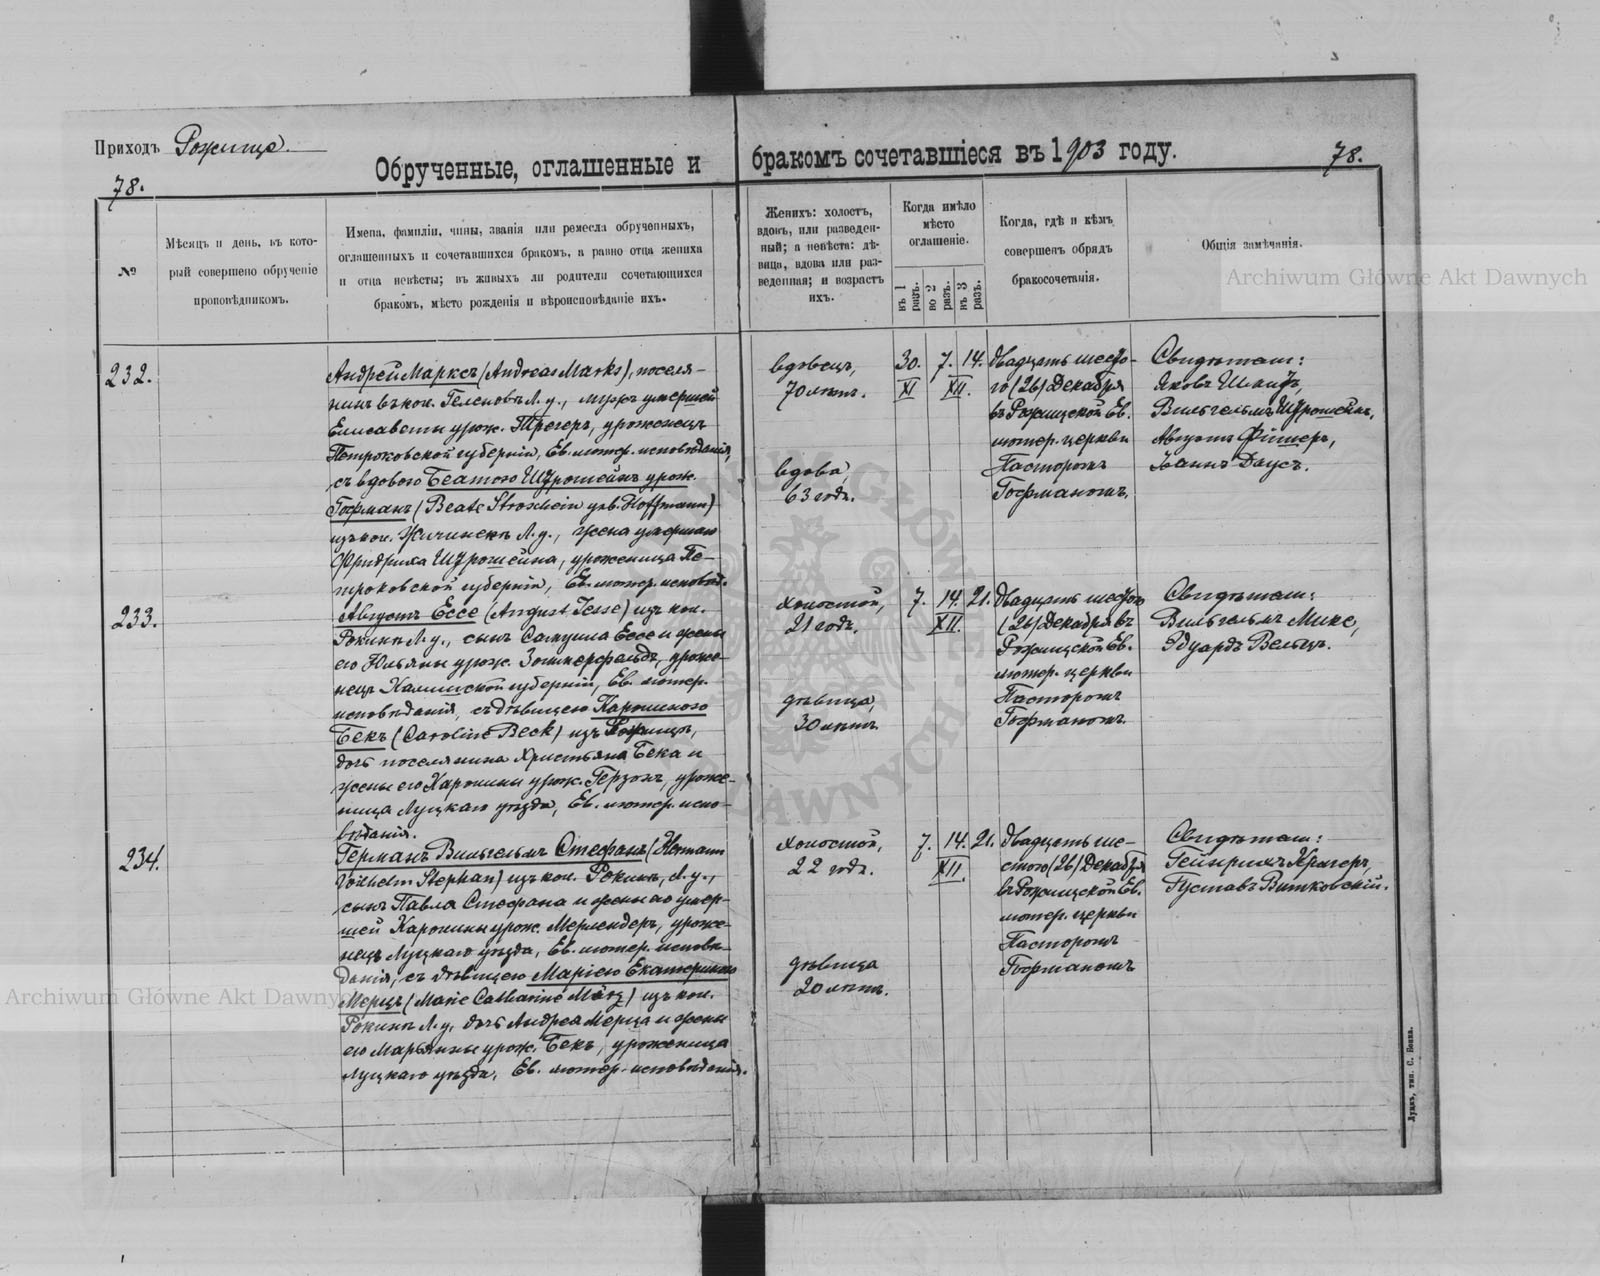 Приходъ Рожище.
78.
Обрученные, оглашенные и бракомъ сочетавшіеся въ 1903 году.
78.
№
Мѣсяцъ и день, въ кото-
рый совершено обрученіе
проповѣдникомъ.
Имена, фамиліи, чины, званія или ремесла обрученныхъ,
оглашенныхъ и сочетавшихся бракомъ, а равно отца жениха
и отца невѣсты; въ живыхъ ли родители сочетающихся
бракомъ, мѣсто рожденія и вѣроисповѣданіе ихъ.
Женихъ: холостъ,
вдовъ, или разведен-
ный; а невѣста: дѣ-
вица, вдова или раз-
веденная; и возрастъ
ихъ.
Когда имѣло
мѣсто
оглашеніе.
въ 1 разъ.
во 2 разъ.
въ 3 разъ.
Когда, гдѣ и кѣмъ
совершенъ обрядъ
бракосочетанія.
Общія замѣчанія.
232.
Андрей Марксъ (Andreas Marks), поселя-
нинъ въ кол. Геленовъ Л. у., мужъ умершей
Елисаветы урож. Трегеръ, уроженецъ
Петроковской губерніи, Ев. лютер. исповѣданія,
съ вдовою Беатою Штрошейнъ урож.
Гофманъ (Beate Stroschein geb. Hoffmann)
изъ кол. Л. у., жена умершаго
Фридриха Штрошейна, уроженица Пе-
троковской губерніи, Ев. лютер. исповѣд.
вдовецъ,
70 лѣтъ.
вдова,
63 годъ.
30. 7. 14.
XI XII.
двадцать шесто-
го (26) Декабря
въ Рожищской Ев.
лютер. церкви
Пасторомъ
Гофманомъ.
Свидѣтели:
Яковъ
Вильгельмъ Штрошейнъ,
Августъ Фишеръ,
Іоаннъ Даусъ.
233.
Августъ Ессе (August Jesse) изъ кол.
Рокинь Л. у., сынъ Самуила Ессе и жены
его Юльяны урож. Зоммерфельдъ, уроже-
нецъ Калишской губерніи, Ев. лютер.
исповѣданія, съ дѣвицею Каролиною
Бекъ (Caroline Beck) изъ Рожищъ,
дочь поселянина Христьяна Бека и
жены его Каролины урож. Герзонъ, уроже-
ница Луцкаго уѣзда, Ев. лютер. испо-
вѣданія.
холостой,
21 годъ.
дѣвица,
30 лѣтъ.
7. 14. 21.
XII.
Двадцать шестого
(26) Декабря въ
Рожищской Ев.
лютер. церкви
Пасторомъ
Гофманомъ
Свидѣтели:
Вильгельмъ Микс,
Эдуардъ Вельцъ.
234.
Германъ Вильгельмъ Стефанъ (Hermann
Wilhelm Stephan) изъ кол. Рокинь, Л. у.,
сынъ Павла Стефана и жены его умер-
шей Каролины урож. Мерлендеръ, уроже-
нецъ Луцкаго уѣзда, Ев. лютер. исповѣ-
данія, съ дѣвицею Маріею Екатериною
Мерцъ (Marie Catharine März) изъ кол.
Рокинь Л. у. дочь Андрея Мерца и жены
его Марьянны урож. Бекъ, уроженица
Луцкаго уѣзда, Ев. лютер. исповѣданія.
холостой,
22 годъ.
дѣвица
20 лѣтъ.
7. 14. 21.
XII.
Двадцать ше-
стого (26) Декабря
въ Рожищской Ев.
лютер. церкви
Пасторомъ
Гофманомъ
Свидѣтели:
Гейнрихъ Крагеръ,
Густавъ Витковскій.
Луцкъ, тип. С. Бокка.
Archiwum Główne Akt Dawnych
Archiwum Główne Akt Dawnych